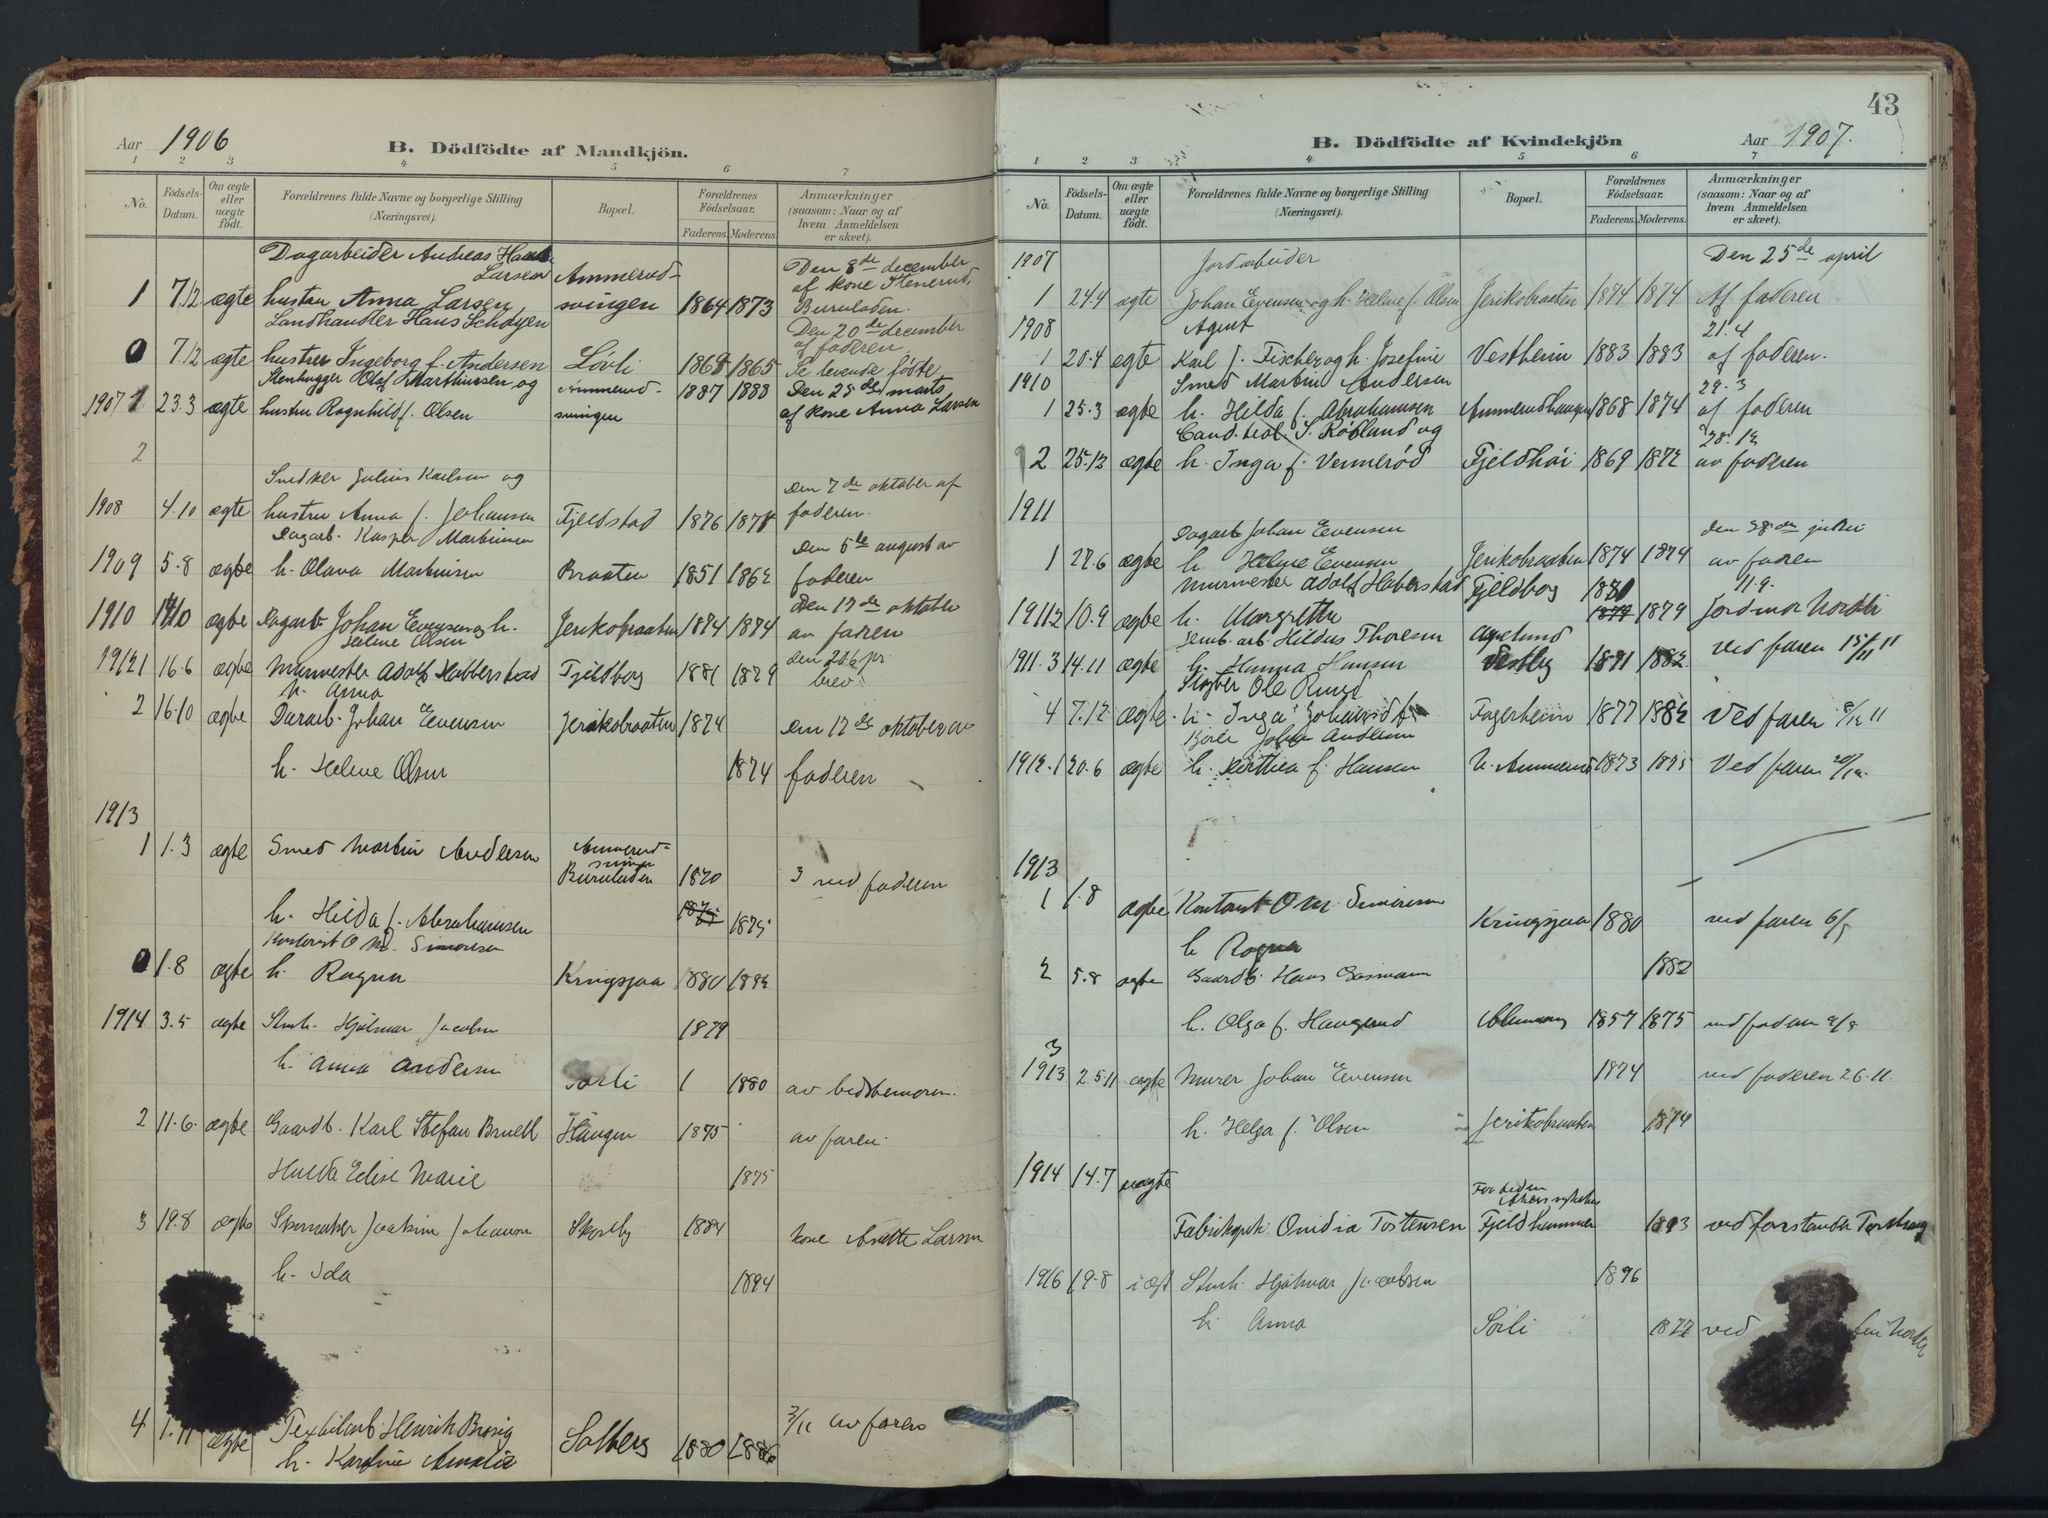 Aar 1906
B. Dödfödte af Mandkjön.
1 2 3 4 5 6 7
No.
Födsels-Datum.
Om ægte eller uægte födt.
Forældrenes fulde Navne og borgerlige Stilling (Næringsvei).
Bopæl.
Forældrenes Födselsaar.
Faderens. Moderens.
Anmærkninger (saasom: Naar og af hvem Anmeldelsen er skeet).
Dagarbeider Andreas
Larsen Ammerud- Den 8de december
1 7.12 ægte hustru Anna Larsen svingen 1864 1873 af kone Stenerud, Buruladen.
Landhandler Hans Schøyen Den 20de december
0 7.12 ægte hustru Ingeborg f. Andersen Løvli 1865 af faderen.
Se levende fødte
Stenhugger Olaf Marthinsen og Ammerud- 1887 1888 Den 25de marts
1907 1 23.3 ægte hustru Ragnhild f. Olsen svingen af kone Anna Larsen
2
Snedker Julius Karlsen og Den 7de oktober af
1908 4.10 ægte hustru Anna f. Johansen Fjeldstad 1876 faderen.
Dagarb. Kasper Martinsen Den 5te august av
1909 5.8 ægte h. Olava Martinsen Braaten 1851 1862 faderen
Den 17de oktober
1910 ægte Dagarb. Johan Evensen og h. Jerikobraaten 1874 1874 av faderen
Olsen
1912 1 16.6 ægte Murmester Adolf Habberstad Fjeldborg 1881 1879 den 20.6 pr. brev
h. Anna
2 16.10 ægte Dagarb. Johan Evensen Jerikobraaten 1874 Den 17de oktober av
h. Helene Olsen 1874 faderen
1913
1 1.3 ægte Smed Martin Andersen Ammerud-
Buruladen 1870 3 ved faderen
h. Hilda f. Abrahamsen 1875
Kontorist O. M. Simonsen
0 1.8 ægte h. Ragna Kringsjaa 1880 1892
1914 3.5 ægte Stenh. Hjalmar Jacobsen 1879
h. Anna Andersen Sørli 1 1880 av bedstemoren.
2 11.6. ægte Gaardb. Karl Stefan Bruell Haugen 1875 av faren.
Hulda Elise Marie 1875
3 19.8 ægte Skomaker Joakim Johansen Skovly 1884 kone Anette Larsen
h. Ida 1894
4 1.11 ægte Textilarb. Henrik Brosig Solberg 1880 1886 2/11 av faren
h. Karoline Amalie
43
B. Dödfödte af Kvindekjön
Aar 1907.
1 2 3 4 5 6 7
No.
Födsels-Datum.
Om ægte eller uægte födt.
Forældrenes fulde Navne og borgerlige Stilling (Næringsvei).
Bopæl.
Forældrenes Födselsaar.
Faderens. Moderens.
Anmærkninger (saasom: Naar og af hvem Anmeldelsen er skeet).
1907 Jordarbeider Den 25de april
1 24.4 ægte Johan Evensen og h. Helene f. Olsen Jerikobraaten 1874 1874 Af faderen
1908 Agent 21.4
1 20.4 ægte Karl J. Fischer og h. Josefine Vestheim 1883 1883 af faderen.
1910 Smed Martin Andersen 29.3
1 25.3 ægte h. Hilda f. Abrahamsen Ammerudhaugen 1868 1874 af faderen
Cand. teol. S. Rødland og 28.12
2 25.12 ægte h. Inga f. Vennerød Fjeldhøi 1869 1872 av faderen
1911
Dagarb. Johan Evensen
1 27.6 ægte h. Helene Evensen Jerikobraaten 1874 1874 av faderen
Murmester Adolf Haberstad Fjeldborg 11.9.
1911 2 10.9 ægte h. Margrethe 1879 Jordmor Nordli
arb. Hildus Thoresen
1911. 3 14.11 ægte h. Hanna Hansen Vestby 1882 ved faren 15/11 11
Ole Ruud
4 7.12 ægte h. Inga Fagerheim 1877 1882 Ved faren 8/12 11
Johan Andersen
1912. 1 20.6 ægte h. Dorthea f. Hansen N. Ammerud 1873 1875 Ved faren
1913
1 1.8 ægte Kontorist O. M. Simonsen Kringsjaa 1880 ved faren
h. Ragna 1882
2 5.8 ægte Gaardb. Hans Gasmann
h. Olga f. Haugerud 1857 1875 ved faderen 9/8
3
1913 25.11 ægte Murer Johan Evensen 1874 ved faderen 26.11.
h. Helga f. Olsen Jerikobraaten 1874
1914 14.7 uægte
Fabrikarb. Ovidia Torstensen Fjeldhammer 1893 ved forstander
1916 19.8 Stenh. Hjalmar Jacobsen 1876
h. Anna Sørli ved